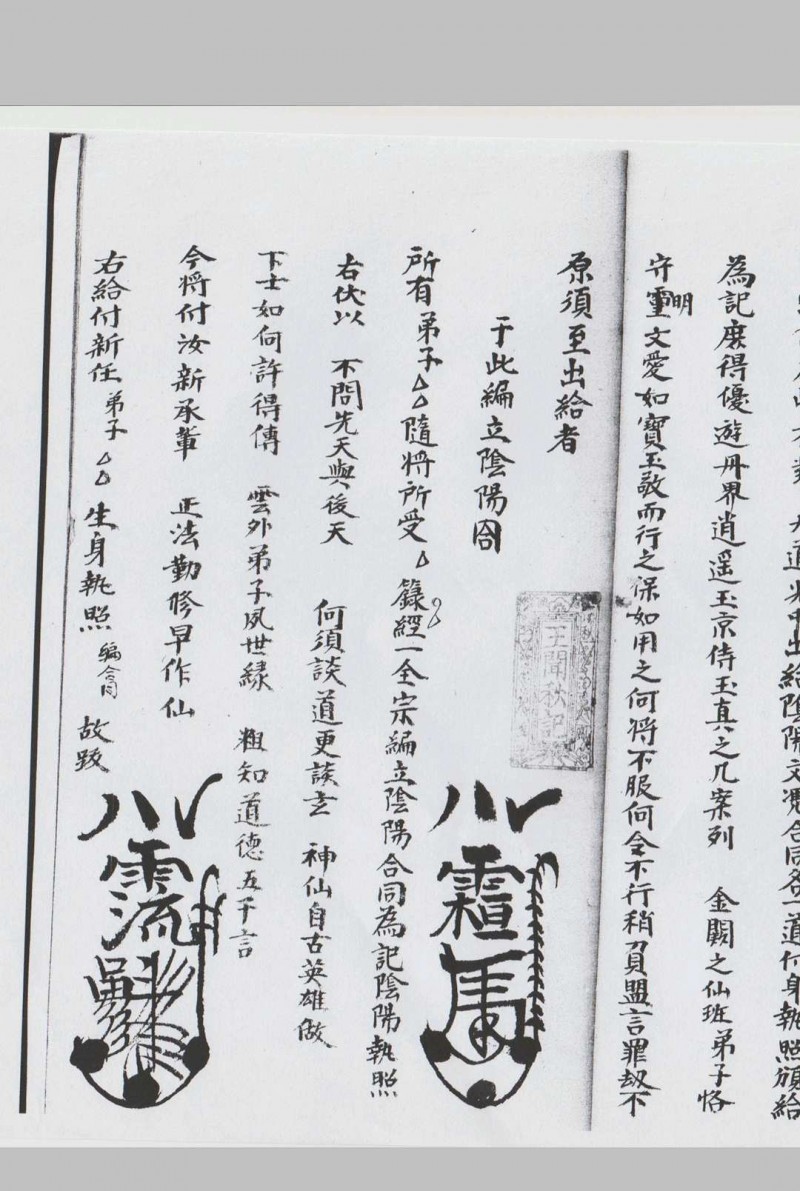 道 出給陰陽文憑合同各一道付身執照頒給
為記庶得優遊丹界逍遥玉京侍玉真之几案列 金闕之仙班弟子恪
守靈明文愛如寶玉敬而行之保如用之何將不服何令不行稍負盟言罪劫不
原須至出給者
于此編立陰陽合同
所有弟子△△隨將所受△籙經一全宗編立陰陽合同為記陰陽執照
右伏以 不問先天與後天 何須談道更談玄 神仙自古英雄做
下士如何許得傳 雲外弟子夙世緣 粗知道德五千言
今將付汝新承輩 正法勤修早作仙
右給付新任弟子△△生身執照 編合同 故跋
王聞秋記